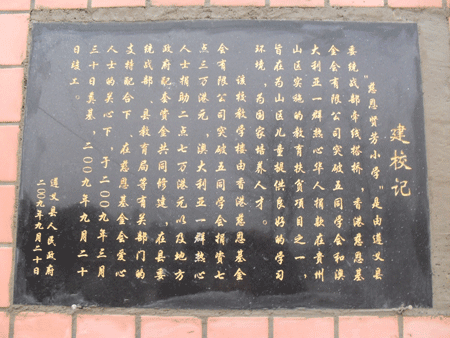 建校记
“慈恩贤芳小学”是由遵义县
委统战部牵线搭桥，香港慈恩基
金会有限公司突破五同学会和澳
大利亚一群热心华人捐款在贵州
山区实施的教育扶贫项目之一，
旨在为山区儿童提供良好的学习
环境，为国家培养人才。
该校教学楼由香港慈恩基金
会有限公司突破五同学会捐资七
点三万港元，澳大利亚一群热心
人士捐助二点七万港元以及地方
政府配套资金共同修建，在县委
统战部、县教育局等有关部门的
支持配合下，在慈恩基金会爱心
人士的关心下，于二00九年三月
三十日奠基，二00九年九月二十
日竣工。
遵义县人民政府
二00九年九月二十日